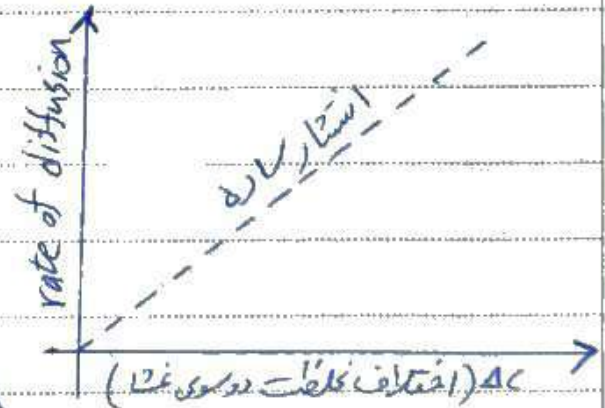 rate of diffusion
انتشار ساده
ΔC (اختلاف غلظت دو سوی غشا)